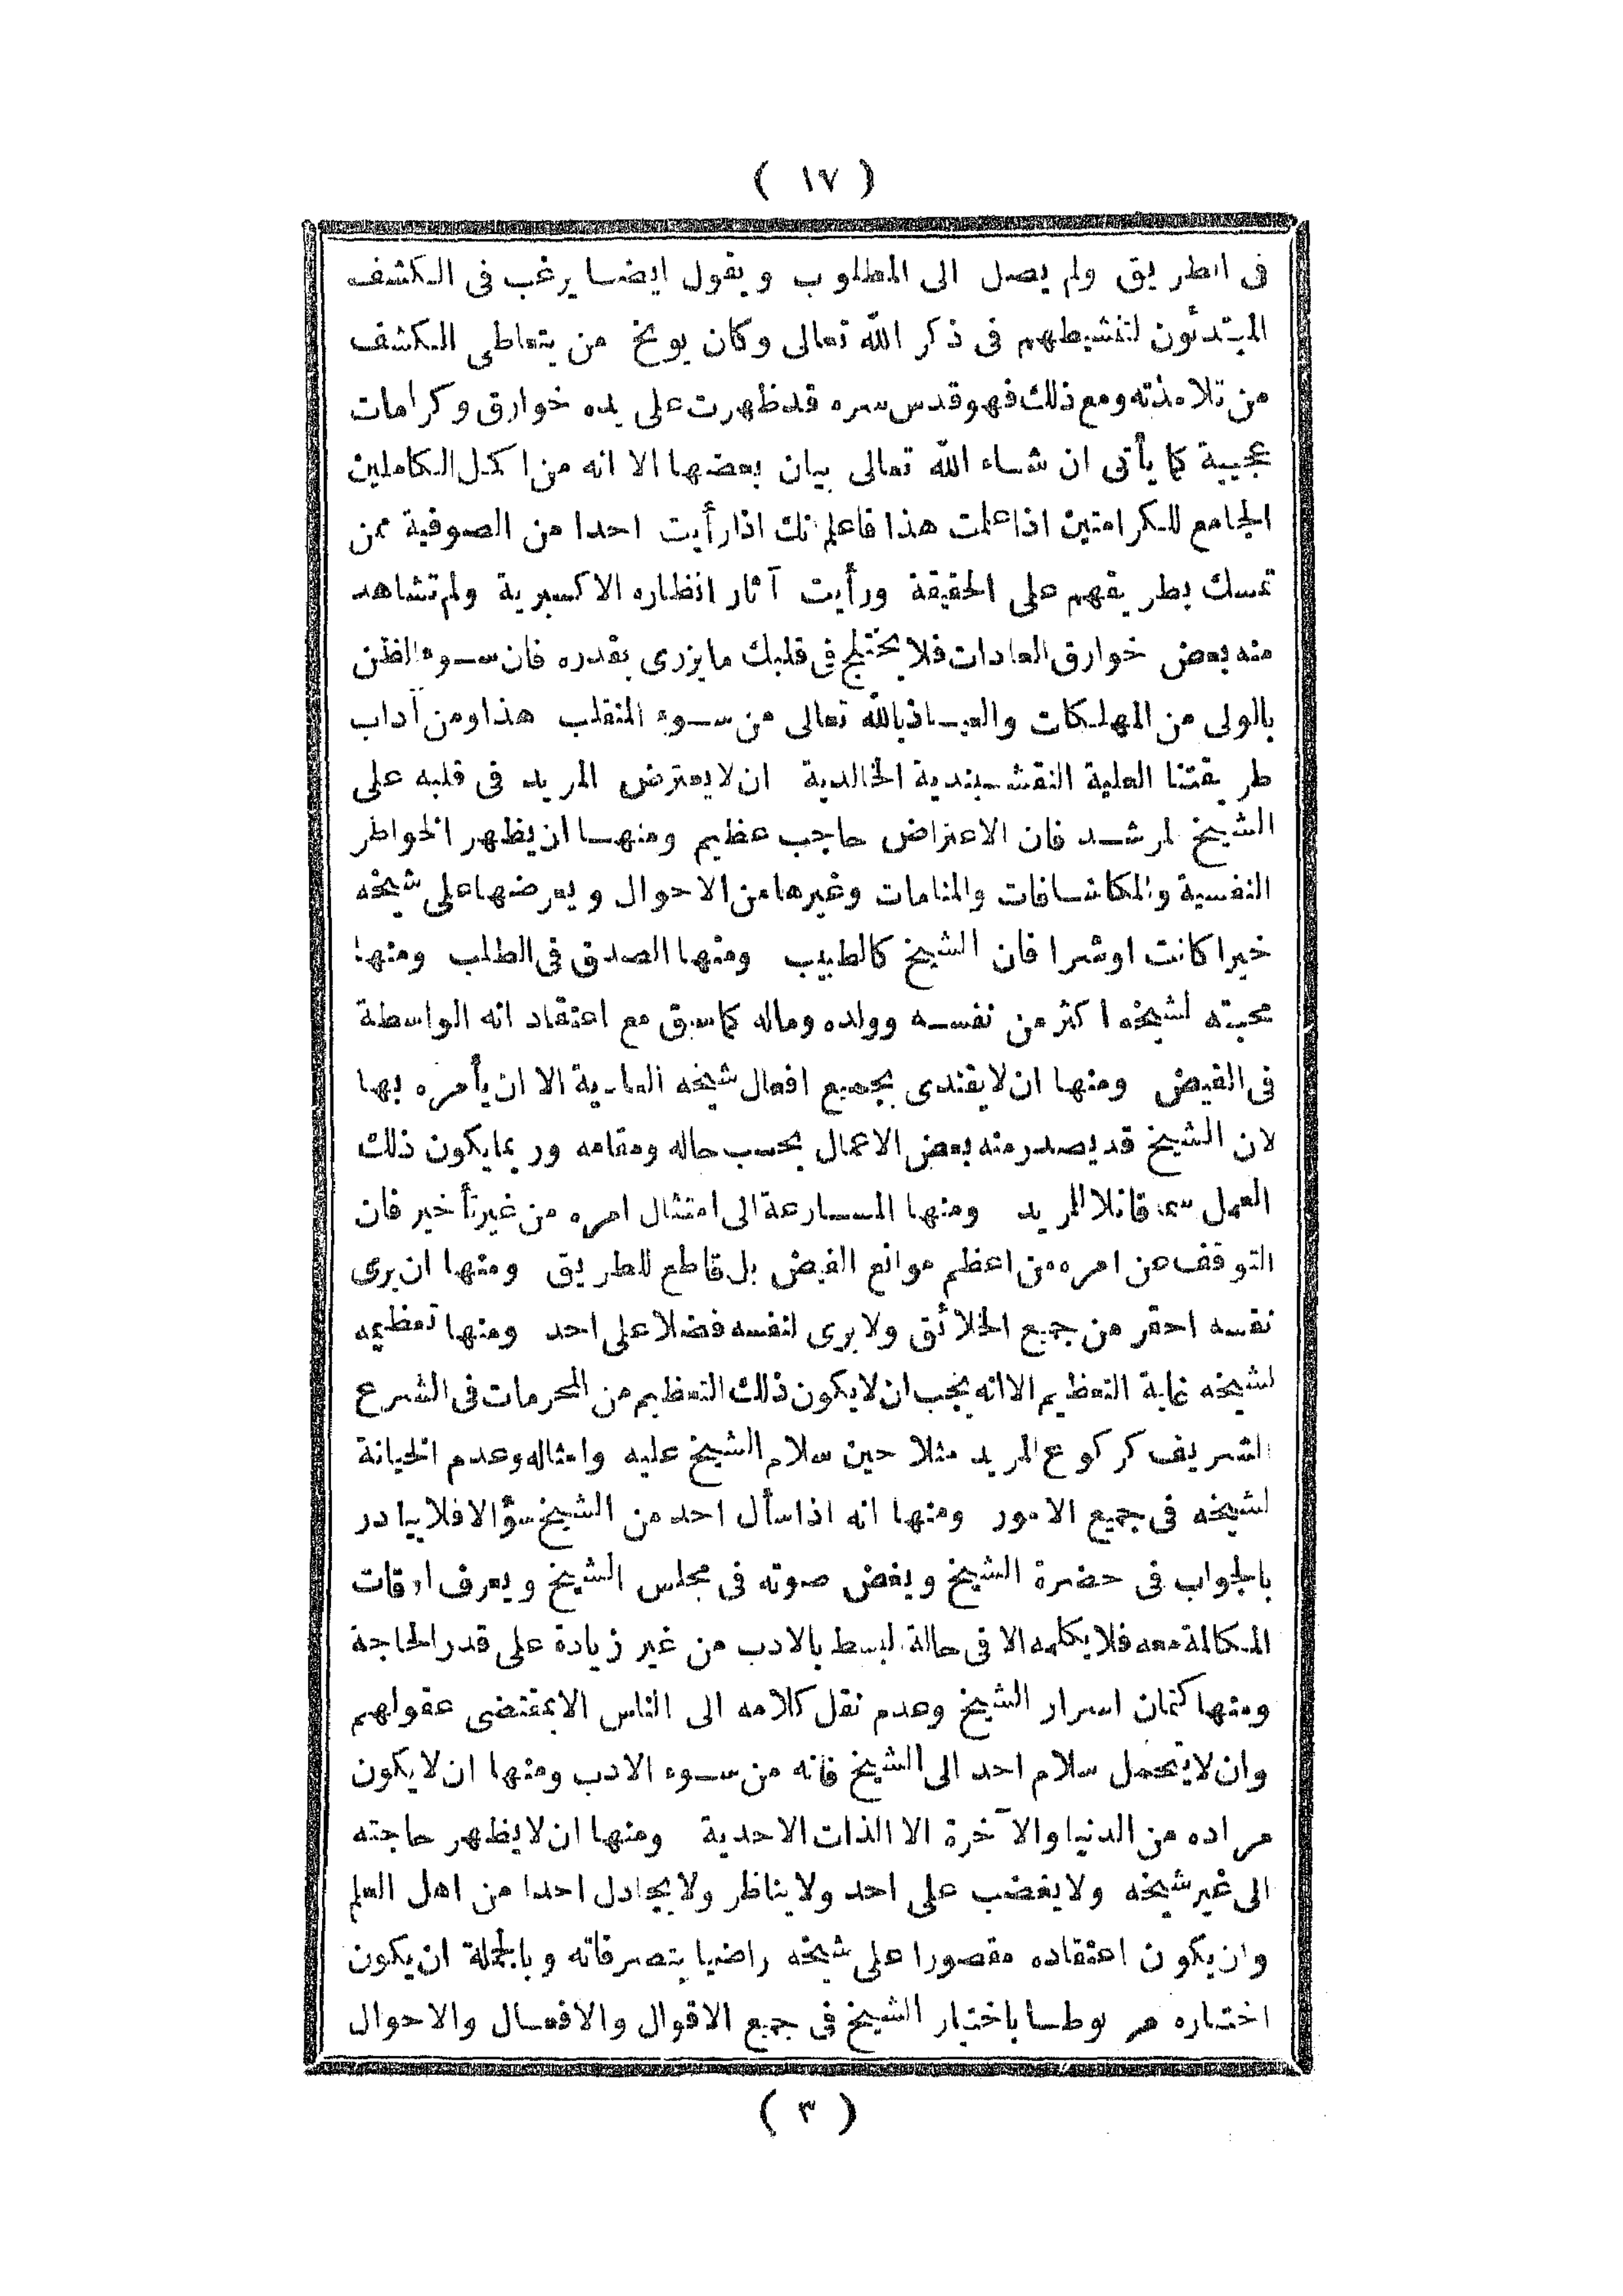 ( ١٧ )
فى الطريق ولم يصل الى المطلوب ويقول ايضا يرغب فى الكشف
المبتدئون لتنشيطهم فى ذكر الله تعالى وكان يوبخ من يتعاطى الكشف
من تلامذته ومع ذلك فهو قدس سره قد ظهرت على يده خوارق وكرامات
عجيبة كما يأتى ان شاء الله تعالى بيان بعضها الا انه من اكمل الكاملين
الجامع للكرامتين اذا علمت هذا فاعلم انك اذا رأيت احدا من الصوفية ممن
تمسك بطريقهم على الحقيقة ورأيت آثار انظاره الاكسيرية ولم تشاهد
منه بعض خوارق العادات فلا يختلج فى قلبك ما يزرى بقدره فان سوء الظن
بالولى من المهلكات والعياذ بالله تعالى من سوء المنقلب هذا ومن آداب
طريقتنا العلية النقشبندية الخالدية ان لا يعترض المريد فى قلبه على
الشيخ المرشد فان الاعتراض حاجب عظيم ومنها ان يظهر الخواطر
النفسية والمكاشافات والمنامات وغيرها من الاحوال ويعرضها على شيخه
خيرا كانت او شرا فان الشيخ كالطبيب ومنها الصدق فى الطلب ومنها
محبته لشيخه اكثر من نفسه وولده وماله كما سبق مع اعتقاد انه الواسطة
فى الفيض ومنها ان لا يقتدى بجميع افعال شيخه العادية الا ان يأمره بها
لان الشيخ قد يصدر منه بعض الاعمال بحسب حاله ومقامه وربما يكون ذلك
العمل سما قاتلا للمريد ومنها المسارعة الى امتثال امره من غير تأخير فان
التوقف عن امره من اعظم موانع الفيض بل قاطع للطريق ومنها ان يرى
نفسه احقر من جميع الخلائق ولا يرى لنفسه فضلا على احد ومنها تعظيمه
لشيخه غاية التعظيم الا انه يجب ان لا يكون ذلك التعظيم من المحرمات فى الشرع
الشريف كركوع المريد مثلا حين سلام الشيخ عليه وامثاله وعدم الخيانة
لشيخه فى جميع الامور ومنها انه اذا سأل احد من الشيخ سؤالا فلا يبادر
بالجواب فى حضرة الشيخ ويغض صوته فى مجلس الشيخ ويعرف اوقات
المكالمة معه فلا يكلمه الا فى حالة البسط بالادب من غير زيادة على قدر الحاجة
ومنها كتمان اسرار الشيخ وعدم نقل كلامه الى الناس الا بمقتضى عقولهم
وان لا يتحمل سلام احد الى الشيخ فانه من سوء الادب ومنها ان لا يكون
مراده من الدنيا والآخرة الا الذات الاحدية ومنها ان لا يظهر حاجته
الى غير شيخه ولا يغضب على احد ولا يناظر ولا يجادل احدا من اهل العلم
وان يكون اعتقاده مقصورا على شيخه راضيا بتصرفاته وبالجملة ان يكون
اختياره مربوطا باختيار الشيخ فى جميع الاقوال والافعال والاحوال
( ٣ )